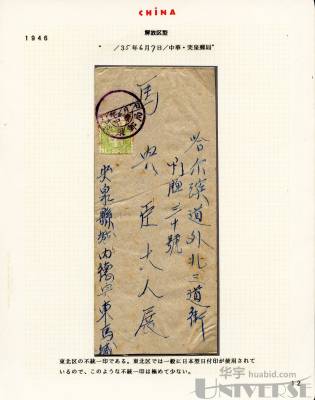 CHINA
1946
解放区型
/35年6月9日/中華・突泉郵局
哈尔滨道外北三道街
門牌三十號
馬興亜大人展
突泉縣城内德
東北区の不統一印である。東北区では一般に日本型日付印が使用されて
いるので、このような不統一印は極めて少ない。
华宇 huabid.com
UNIVERSE
12